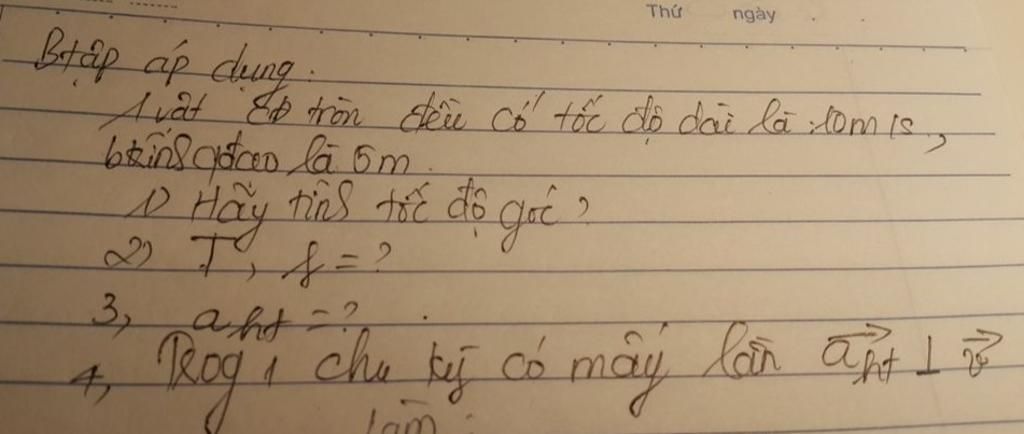 Thứ ngày
Btập áp dụng.
1 vật cđ tròn đều có tốc độ dài là: 10m/s,
bkính qđạo là 5m.
1) Hãy tính tốc độ góc?
2) T, f = ?
3, aht = ?
4, Trog 1 chu kỳ có mấy lần aht ⊥ v
làm